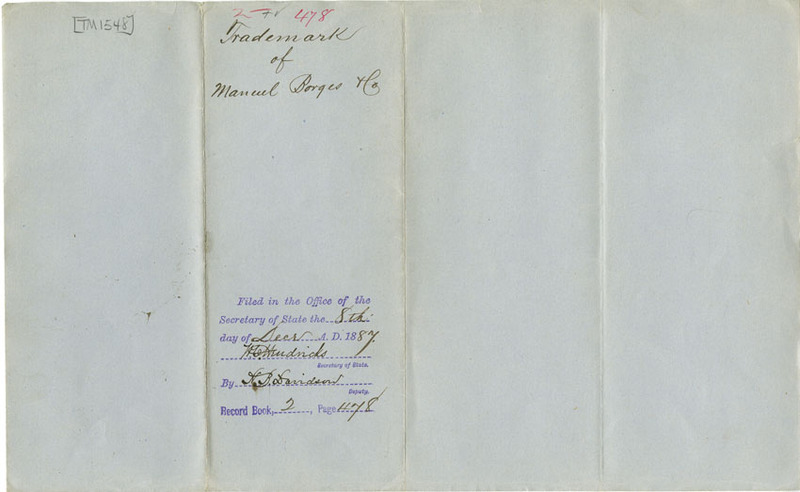 [TM1548]
478
Trademark
of
Manuel Borges & Co
Filed in the Office of the
Secretary of State the 8th
day of Decr A. D. 1887.
W C Hendricks
Secretary of State.
By
Davidson
Deputy.
Record Book, 2, Page 478